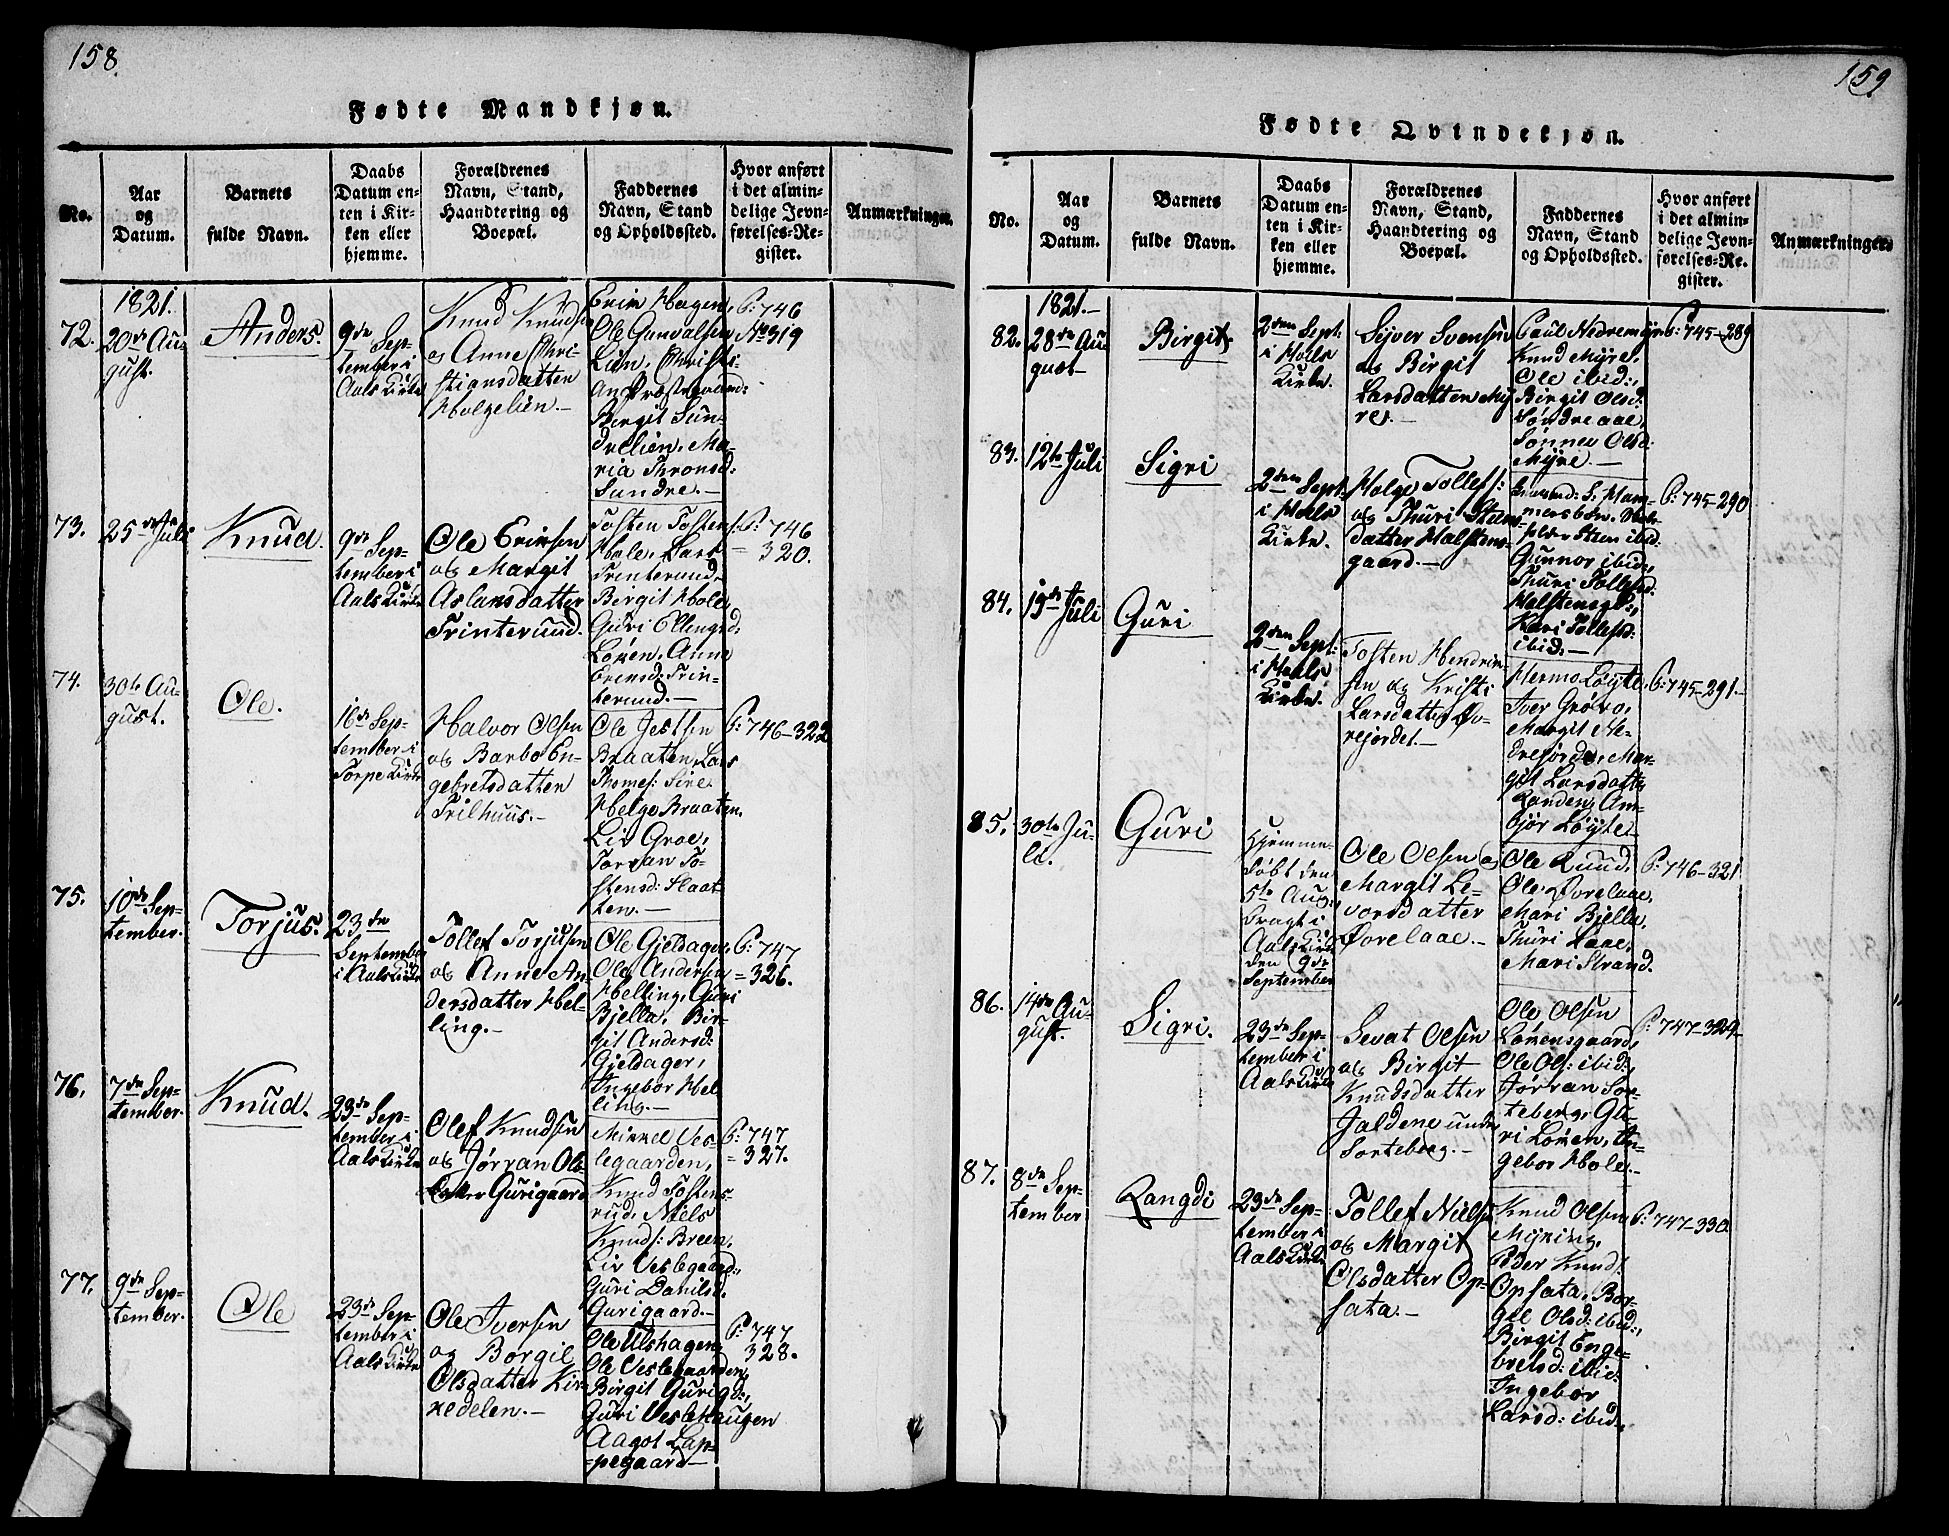 158.
Fødte Mandkjøn.
No.
Aar
og
Datum.
Barnets
fulde Navn.
Daabs
Datum en-
ten i Kir-
ken eller
hjemme.
Forældrenes
Navn, Stand,
Haandtering og
Boepæl.
Faddernes
Navn, Stand
og Opholdssted.
Hvor anført
i det almin-
delige Jevn-
førelses-Re-
gister.
Anmærkninger.
1821.
72.
20de Au-
gust.
Anders.
9de Sep-
tember i
Aals Kirke
Knud Knuds:
og Anne Chri-
stiansdatter
Holgelien.-
Erik Hagen,
Ole Gunvalsen
Lien, Christi-
an Præstegaard:
Birgit Sun-
drelien, Ma-
ria Thronsd:
Sundre.-
P: 746
No 319
73.
25de Juli
Knud.
9de Sep-
tember i
Aals Kirke
Ole Eriksen
og Margit
Aslaksdatter
Trinterud.
Tosten Tostens:
Hole, Lars
Trinterud,
Bergit Hole
Guri Ellingsd:
Løken, Anne
Eriksd: Trin-
terud.-
P: 746
= 320.
74.
30te Au-
gust.
Ole.
16de Sep-
tember i
Torpe Kirke
Halvor Olsen
og Barbo En-
gebretsdatter
Trilhuus.-
Ole Jestsen
Braaten, Lars
Thomes: Sire
Helge Braaten,
Liv Groe,
Jorran To-
stensd: Slaat-
ten.-
P: 746-322
75.
10de Sep-
tember.
Torjus.
23de
September
i Aals Kirke
Tollef Torjusen
og Anne An-
dersdatter Hel-
ling.-
Ole Gjeldager,
Ole Andersen
Helling, Guri
Bjella, Bir-
git Andersd:
Gjeldager,
Ingebor Hel-
ling.-
P: 747
= 326.
76.
7de Sep-
tember.
Knud.
23de Sep-
tember i
Aals Kirke
Olef Knudsen
og Jørran Ols-
datter Gurigaard
Mikkel Ves-
legaarden,
Knud Tostens-
rud, Niels
Knuds: Breen,
Liv Veslegaard:,
Guri Danilsd.
Gurigaard.-
P: 747
= 327.
77.
9de Sep-
tember.
Ole
23de Sep-
tember i
Aals Kirke
Ole Iversen
og Borgil
Olsdatter Kir-
kedelen.-
Ole Ulshagen,
Ole Veslegaarden,
Birgit Gurigd:,
Guri Veslehaugen
Aagot Lap-
-pegaard-
P: 747
328.
159.
Fødte Qvindekjøn.
No.
Aar
og
Datum.
Barnets
fulde Navn.
Daabs
Datum en-
ten i Kir-
ken eller
hjemme.
Forældrenes
Navn, Stand,
Haandtering og
Boepæl.
Faddernes
Navn, Stand
og Opholdssted.
Hvor anført
i det almin-
delige Jevn-
førelses-Re-
gister.
Anmærkninger.
1821.-
82.
28de Au-
gust-
Birgit.
2den Sept:
i Hols
Kirke.
Sjver Svensen
og Birgit
Larsdatter My-
re.-
Paul Nedremyre
Knud Myre,
Ole ibid:,
Birgit Olsd:
Søndreaae,
Sønnev Olsd:
Myre.-
P: 745-289
83.
12te Juli
Sigri
2den Sept:
i Hols
Kirke.
Holge Tollefs:
og Thuri Sten-
datter Halstens-
gaard.-
Gunnor ibid:
Thuri Tollefsd.
Halstensgd:,
Kari Tollefsd:
ibid.-
P: 745-290
84.
15de Juli
Guri
2den Sept:
i Hols
Kirke.
Tosten Hendrik-
sen og Kristi
Larsdatter Øv-
rejordet.-
Hermo Løyte,
Iver Grøvo,
Margit Ne-
drejorde, Mar-
git Larsdatt:
Randen, Am-
bjør Løyte-
P: 745-291.-
85.
30te Ju-
li.
Guri
Hjemme-
døbt den
5te Aug:,
bragt i
Aals Kirke
den 9de
September
Ole Olsen og
Margit Le-
vorsdatter
Øvrelaae.-
Ole Ruud,
Ole Øvrelaae,
Mari Bjella,
Thuri Laae,
Mari Strand.
P: 746-321
86.
14de Au-
gust.
Sigri.
23de Sep-
tember i
Aals Kirke
Sevat Olsen
og Birgit
Knudsdatter
Jaldene under
Sorteberg.-
Ole Olsen
Løkensgaard,
Ole Ols: ibid:,
Jørran Sor-
teberg, Gu-
ri Løken, In-
gebor Hole-
P: 747-329-
87.
8de Sep-
tember
Rangdi
23de Sep-
tember i
Aals Kirke
Tollef Niels:
og Margit
Olsdatter Op-
sata.-
Knud Olsen
Myking,
Peder Knuds:
Opsata, Bor-
gil Olsd: ibid:,
Birgit Enge-
bretsd: ibid:
Ingebor
Larsd: ibid:,
P: 747-330.